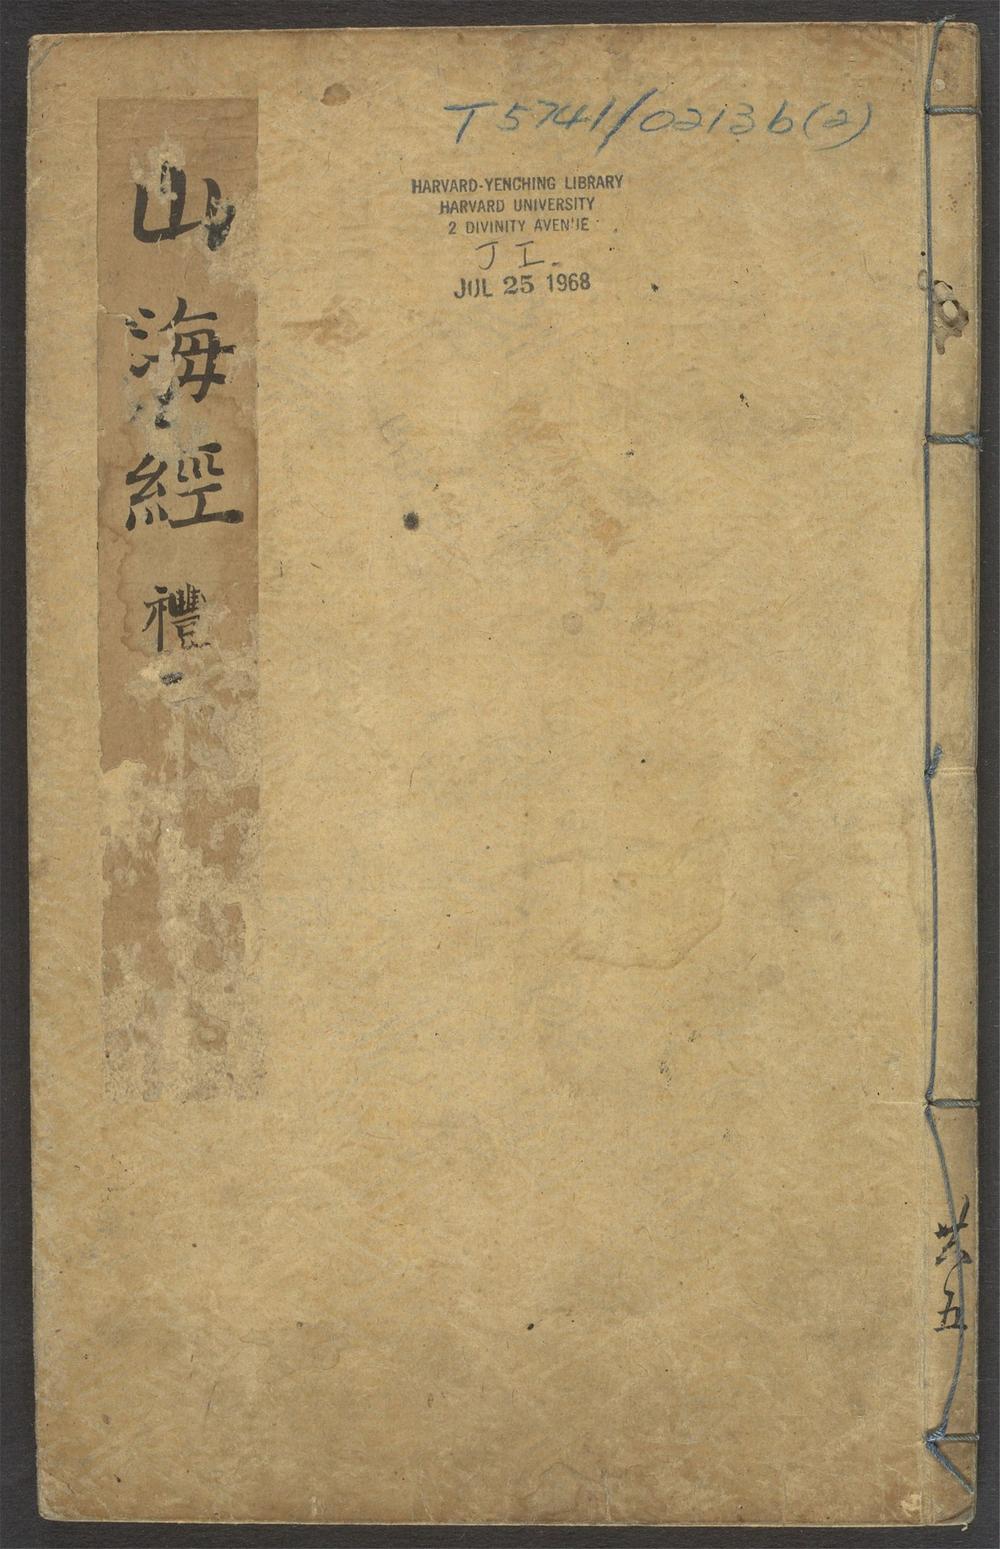 T5741/0213b(2)
HARVARD-YENCHING LIBRARY
HARVARD UNIVERSITY
2 DIVINITY AVENUE
J I.
JUL 25 1968
山海經 禮
共五